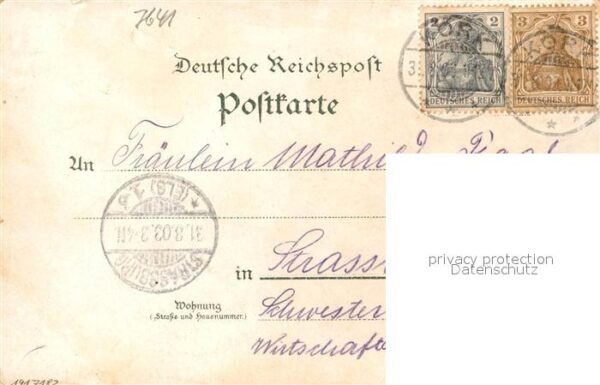 7641
Deutsche Reichspost
Postkarte
2 2
DEUTSCHES REICH
3 3
DEUTSCHES REICH
KORK
KORK
An Fräulein Mathil
STRASSBURG
31.8.03.3-4N
* (ELS) 1
in Strass
Wohnung
(Straße und Hausnummer)
Schwester
Wirtschaft
privacy protection
Datenschutz